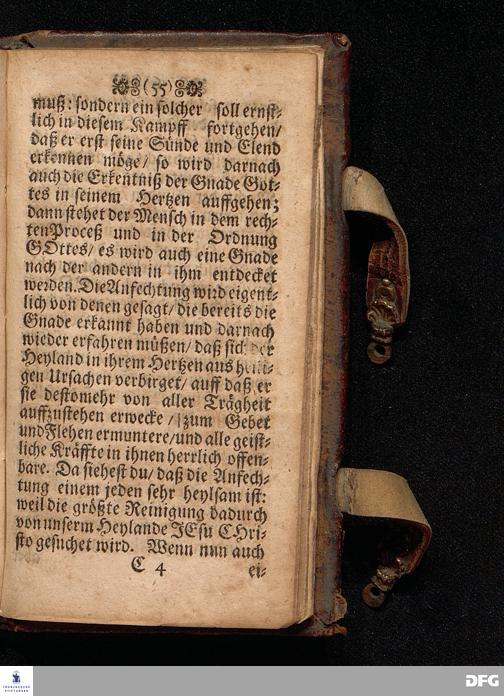 (55)
muß: sondern ein solcher soll ernst-
lich in diesem Kampff fortgehen/
daß er erst seine Sünde und Elend
erkennen möge/ so wird darnach
auch die Erkentniß der Gnade Got-
tes in seinem Hertzen auffgehen;
dann stehet der Mensch in dem rech-
ten Proceß und in der Ordnung
GOttes/ es wird auch eine Gnade
nach der andern in ihm entdecket
werden. Die Anfechtung wird eigent-
lich von denen gesagt/ die bereits die
Gnade erkannt haben und darnach
wieder erfahren müßen/ daß sich der
Heyland in ihrem Hertzen aus heili-
gen Ursachen verbirget/ auff daß er
sie destomehr von aller Trägheit
auffzustehen erwecke/ zum Gebet
und Flehen ermuntere/ und alle geist-
liche Kräffte in ihnen herrlich offen-
bare. Da siehest du/ daß die Anfech-
tung einem jeden sehr heylsam ist:
weil die größte Reinigung dadurch
von unserm Heylande JEsu CHri-
sto gesuchet wird. Wenn nun auch
C 4 ei-
FRANCKESCHE
STIFTUNGEN
DFG